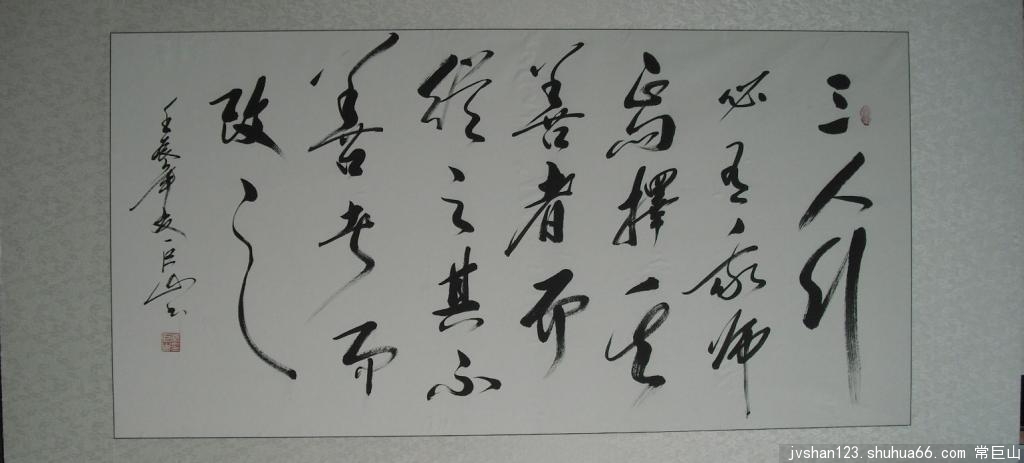 三人行
必有我師
焉擇其
善者而
從之其不
善者而
改之
巨山书
jvshan123.shuhua66.com 常巨山